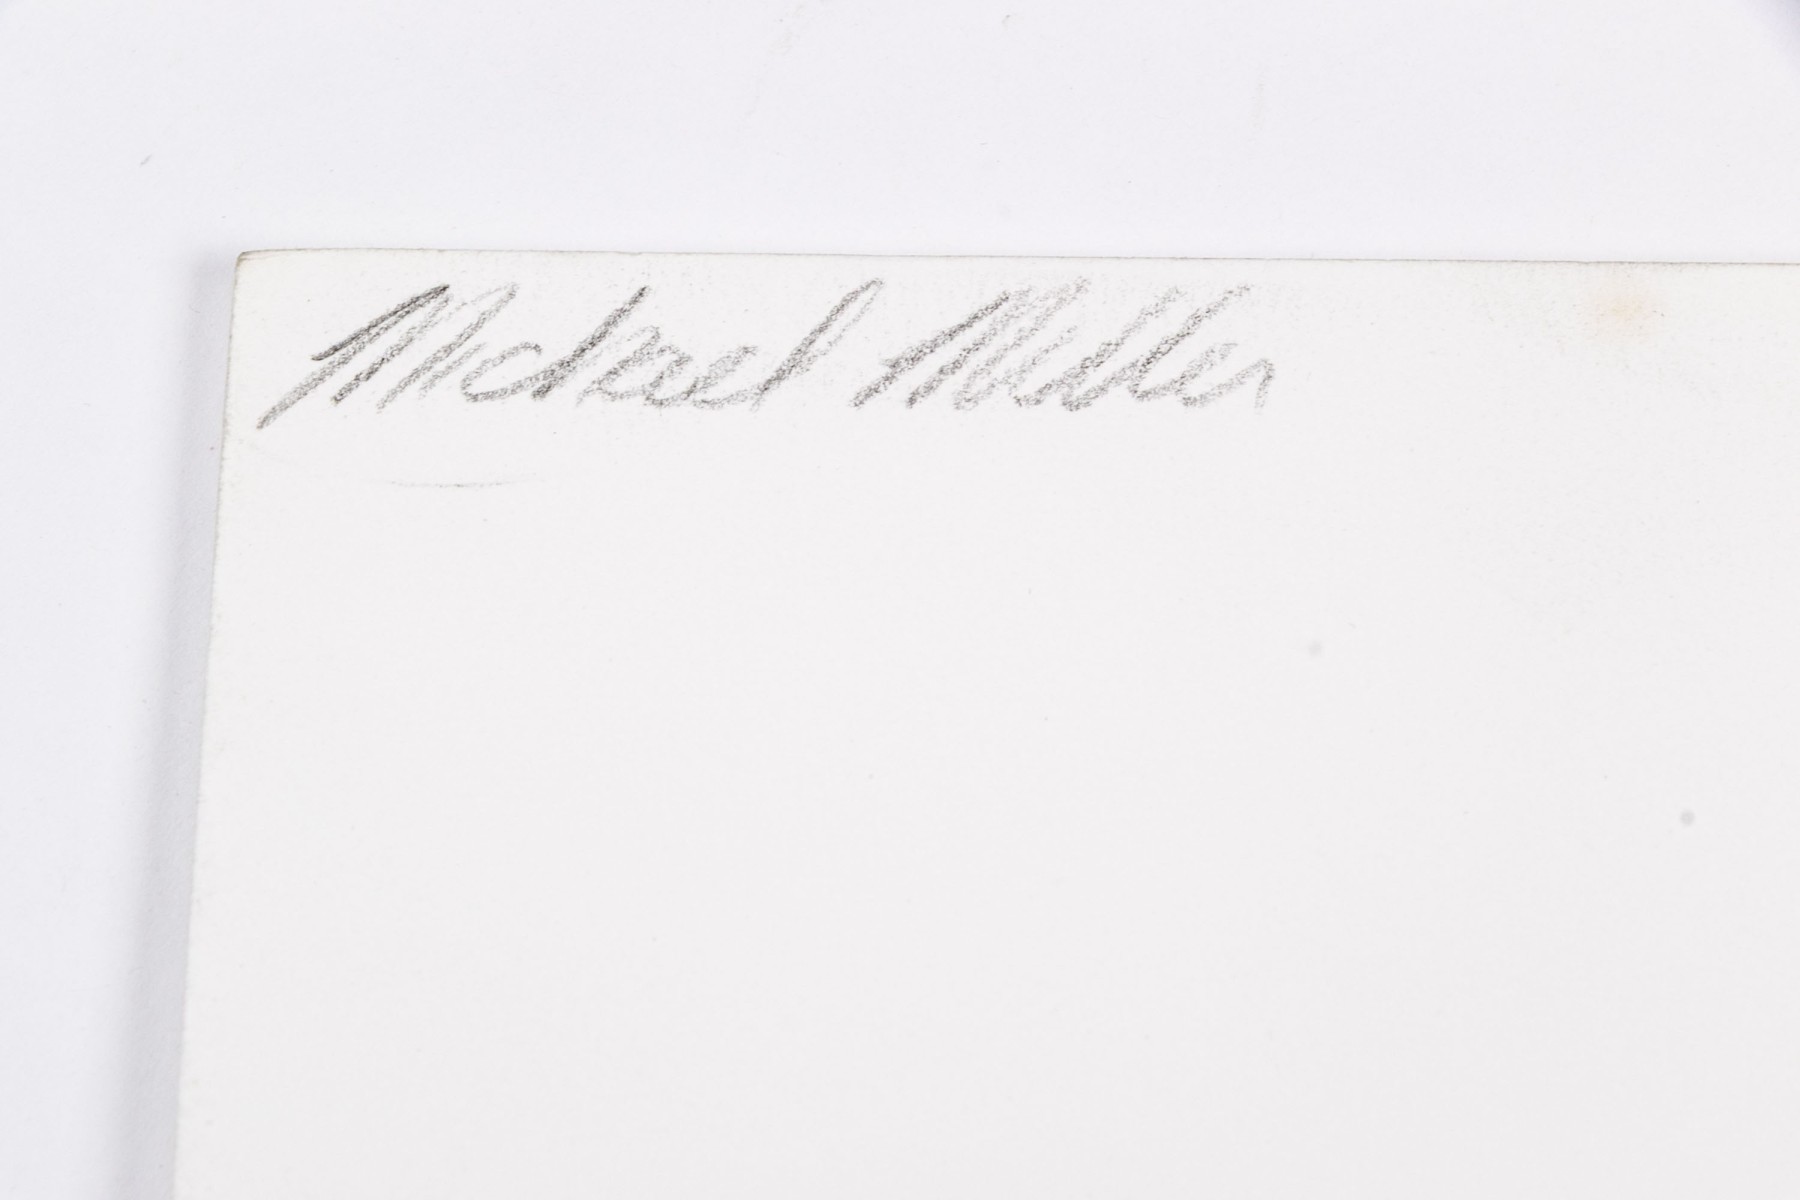 Michael Miller